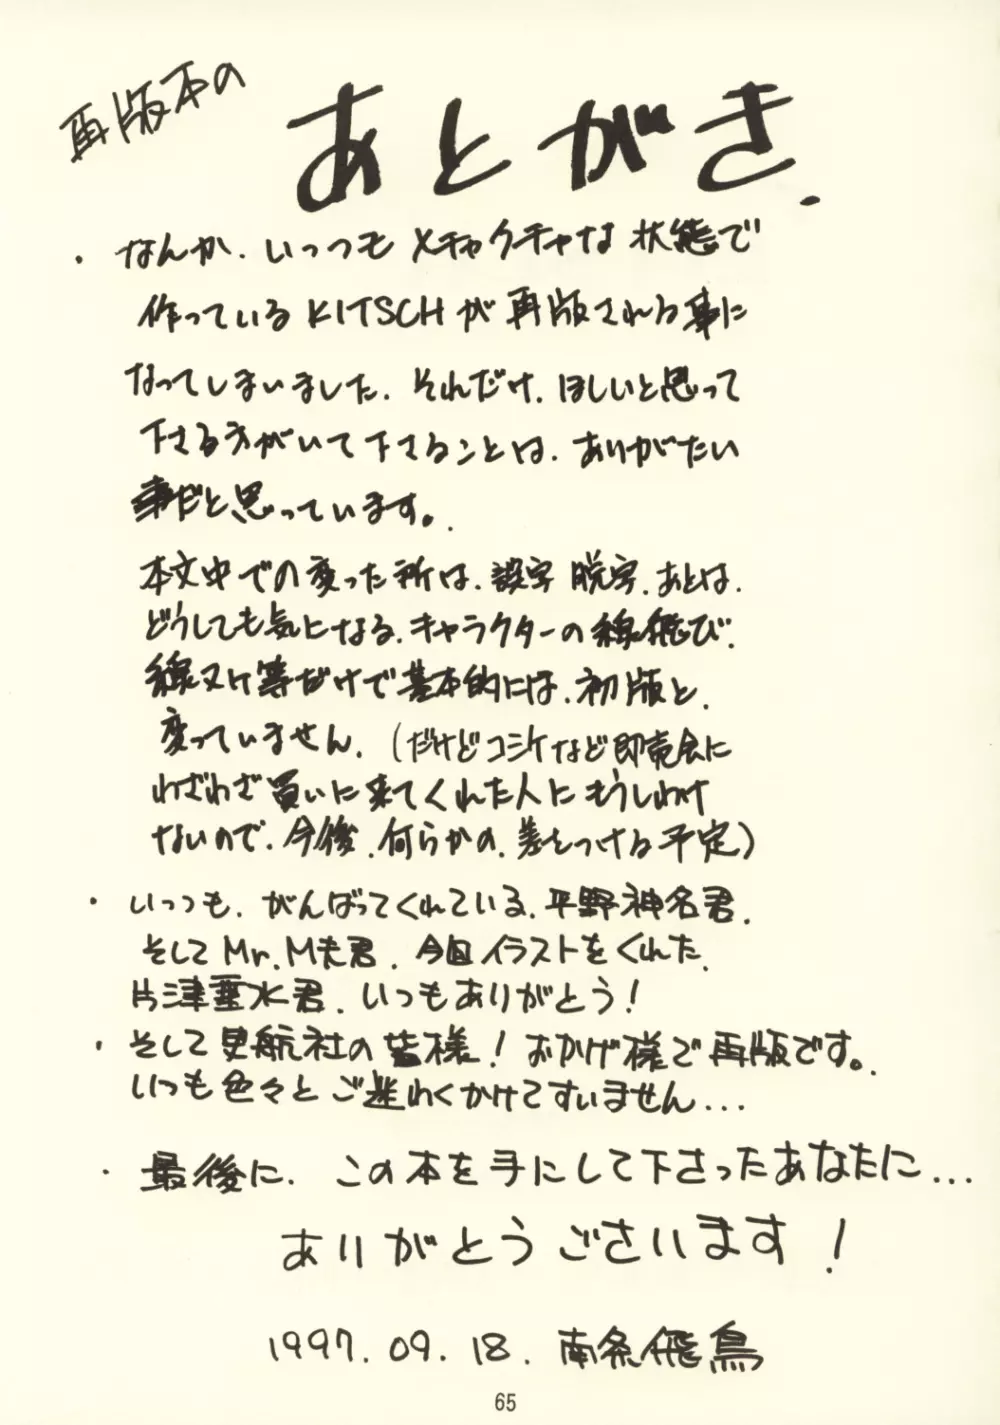 再版本の
あとがき.
・なんか、いっつもメチャクチャな状態で
作っているKITSCHが再版される事に
なってしまいました。それだけ、ほしいと思って
下さる方がいて下さることは、ありがたい
事だと思っています。
本文中での変った所は、誤字 脱字、あとは、
どうしても気になる、キャラクターの線飛び、
線ヌケ等だけで基本的には、初版と、
変っていません。(だけどコミケなど即売会に
わざわざ買いに来てくれた人にもうしわけ
ないので、今後、何らかの、差をつける予定)
・いっつも、がんばってくれている、平野神名君、
そしてMr.M夫君、今回イラストをくれた、
片津垂水君、いつもありがとう!
・そして 航社の皆様!おかげ様で再版です。
いつも色々とご迷わくかけてすいません...
・最後に、この本を手にして下さったあなたに...
ありがとうございます!
1997.09.18. 南条飛鳥
65